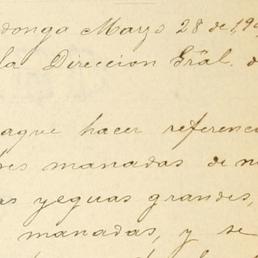 donga Mayo 28 de 19
la Direccion Gral. d
aque hacer referenc
res manadas de
as yeguas grandes,
manadas, y se